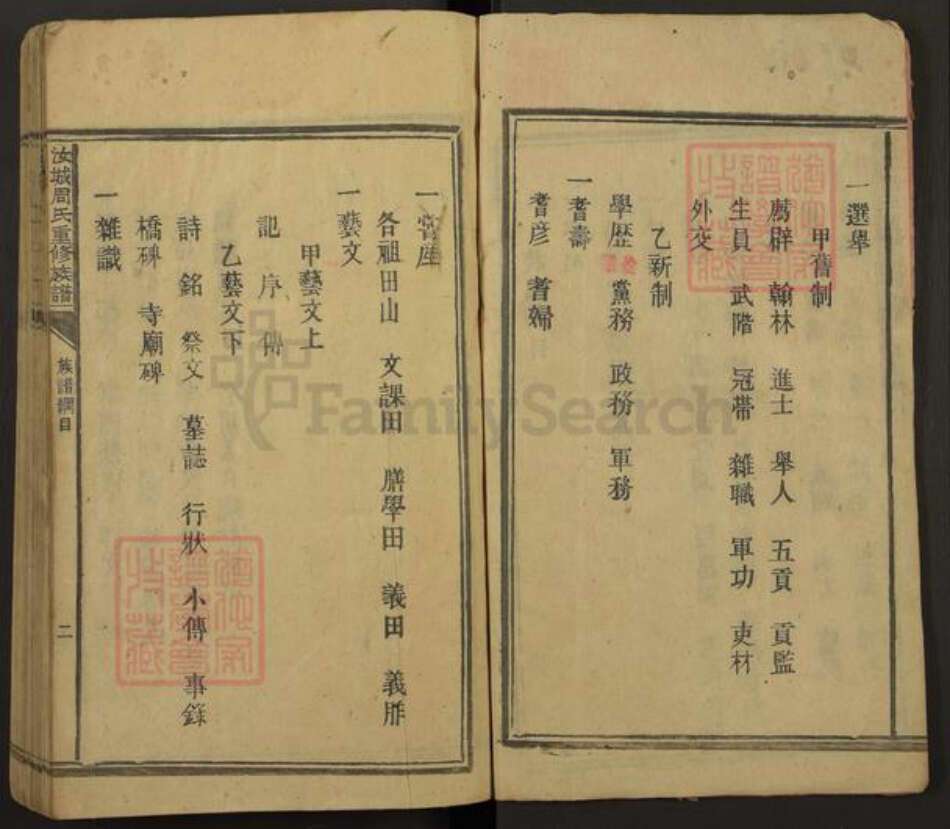 一選舉
甲舊制
薦辟 翰林 進士 舉人 五貢 貢監
生員 武階 冠帶 雜職 軍功 吏材
外交
乙新制
學歷 黨務 政務 軍務
一耆壽
耆彦 耆婦
一嘗産
各祖田山 文課田 膳學田 義田 義胙
一藝文
甲藝文上
記 序 傳
乙藝文下
詩 銘 祭文 墓誌 行狀 小傳 事錄
橋碑 寺廟碑
一雜識
汝城周氏重修族譜
族譜綱目
二
FamilySearch